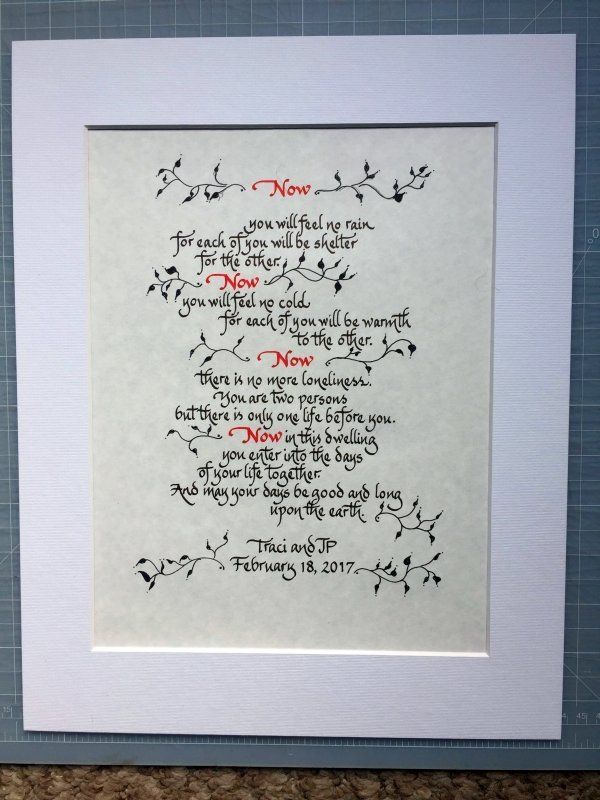 Now
you will feel no rain
for each of you will be shelter
for the other.
Now
you will feel no cold
for each of you will be warmth
to the other.
Now
there is no more loneliness.
You are two persons
but there is only one life before you.
Now in this dwelling
you enter into the days
of your life together.
And may your days be good and long
upon the earth.
Traci and JP
February 18, 2017